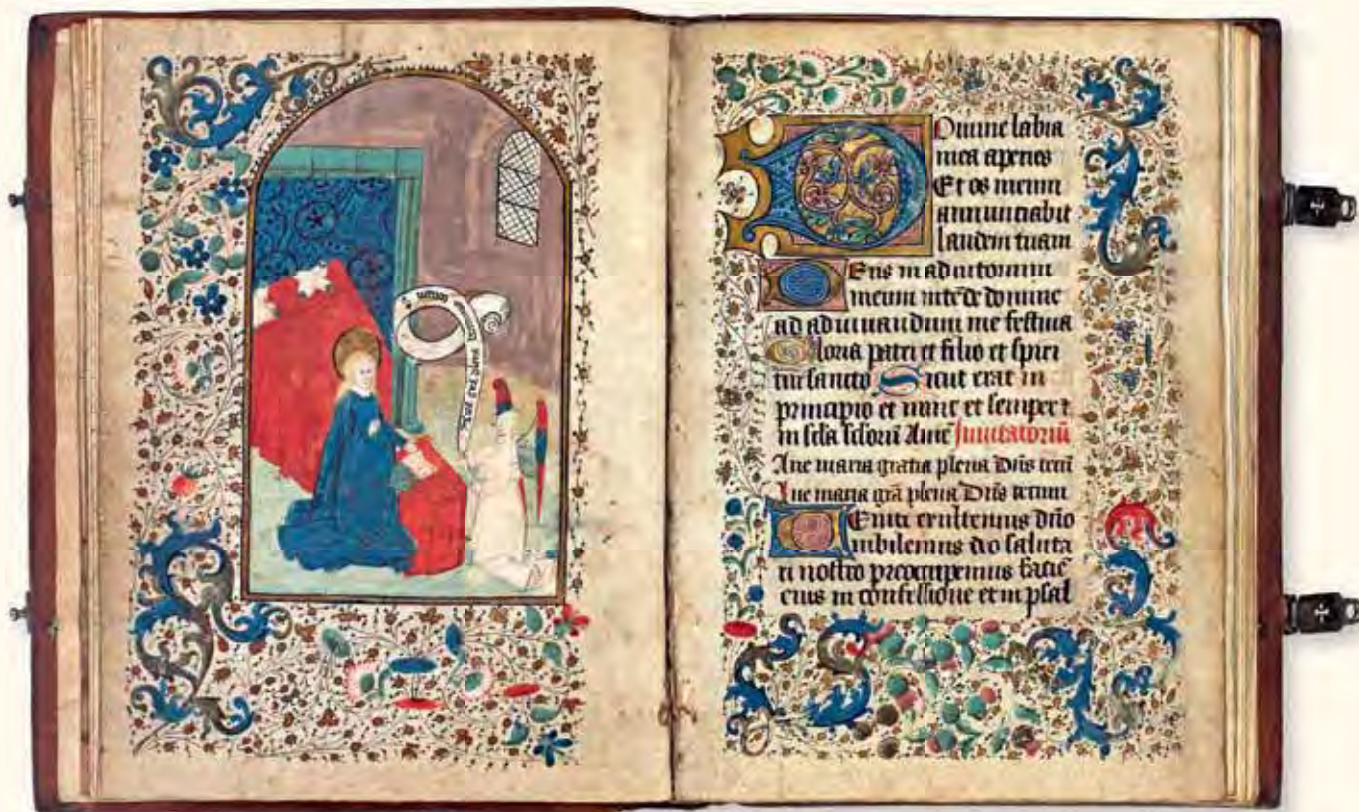 plena
Domine labia
mea aperies
Et os meum
annunciabit
laudem tuam
Deus in adiutorium
meum intēde domine
ad adiuuandum me festina
Gloria patri et filio et spiri
tui sancto Sicut erat in
principio et nunc et semper ⁊
in scła scłorū Amē Inuitatoriū
Aue maria gratia plena Dn̄s tecū
Aue maria grā plena Dn̄s tecum
Uenite exultemus dn̄o
iubilemus deo saluta
ri nostro preocupemus faciē
eius in confessione et in psal